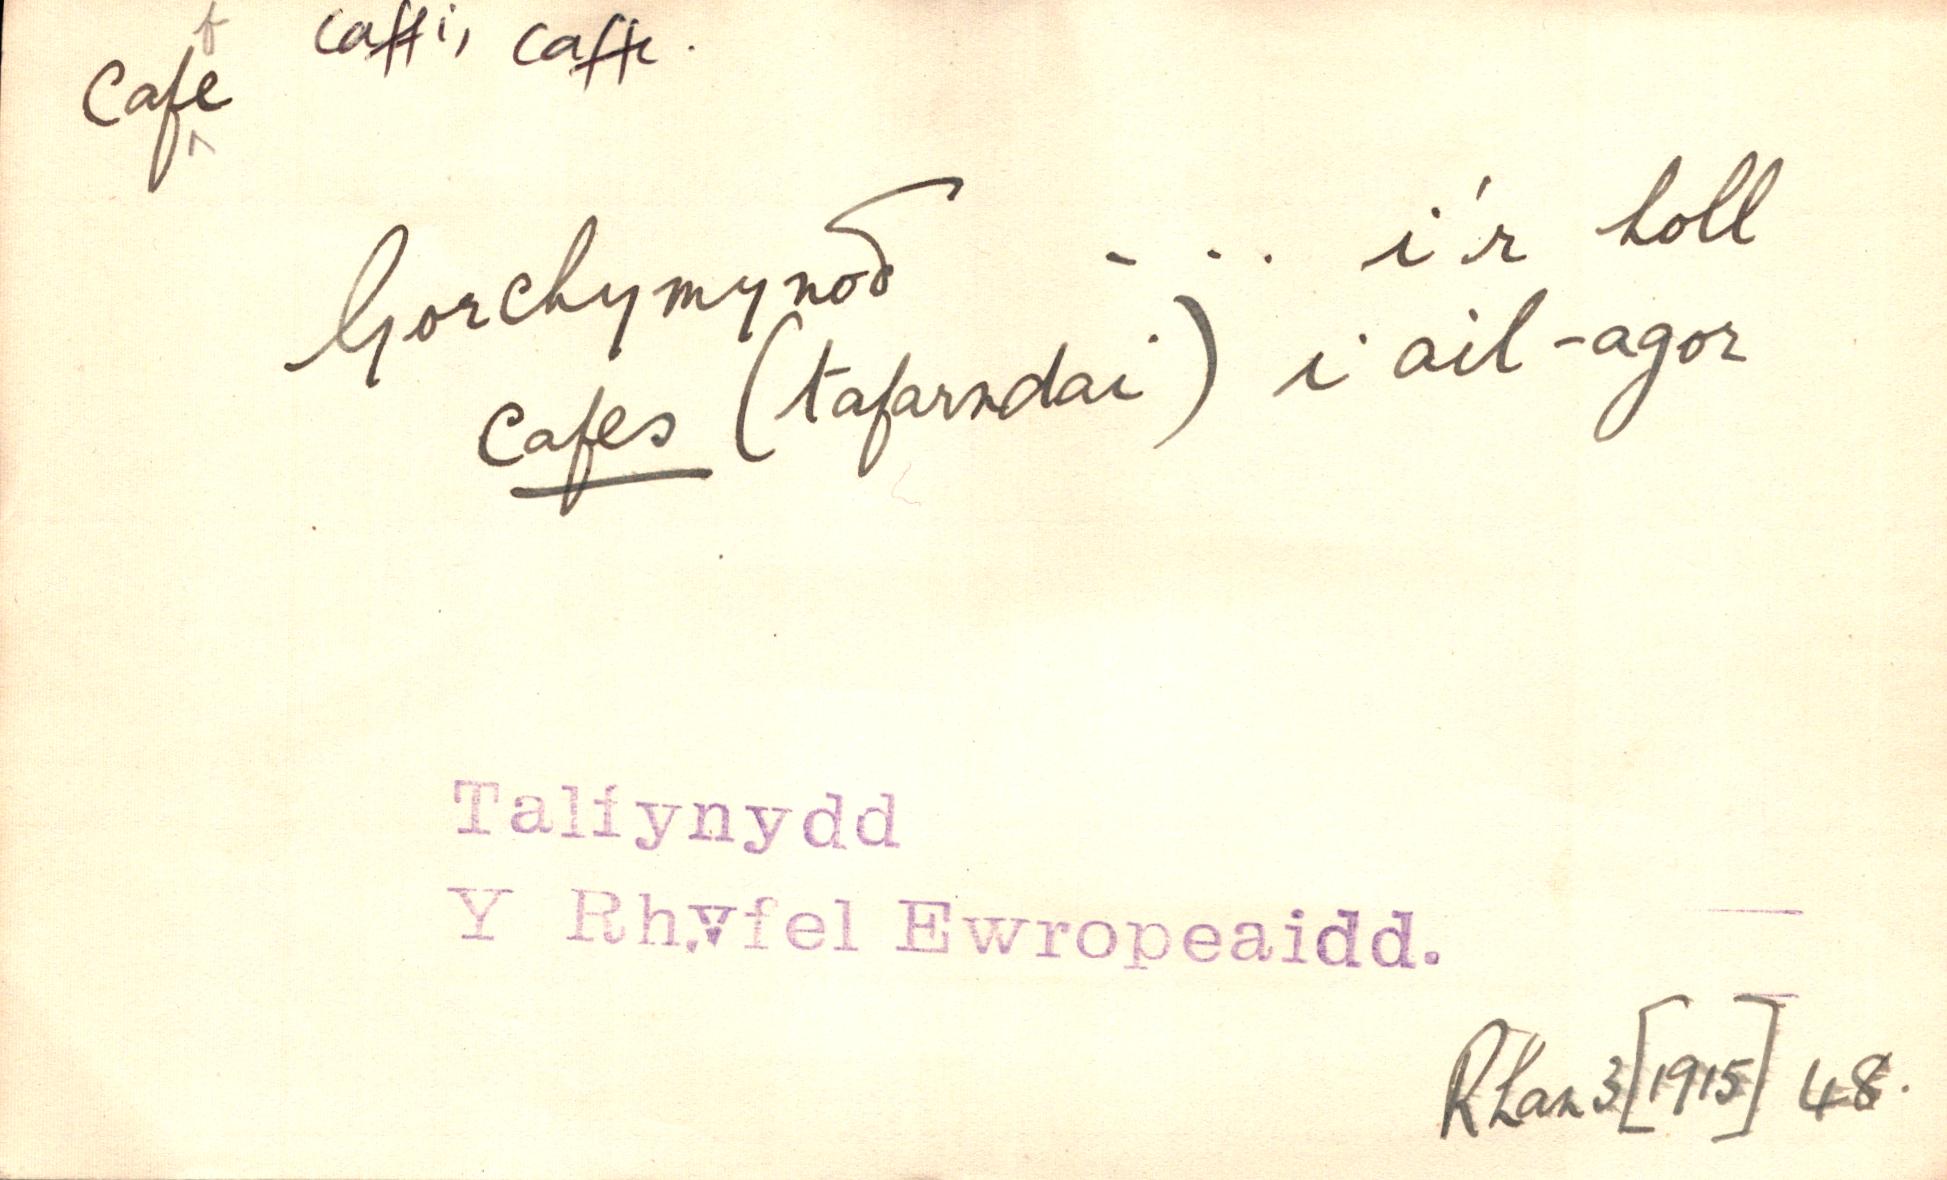 caffi, caffe.
Cafe
f
^
Gorchymynod - . . . i'r holl
cafes (tafarndai) i ail-agor
Talfynydd
Y Rhyfel Ewropeaidd.
Rhan 3 [1915] 48.